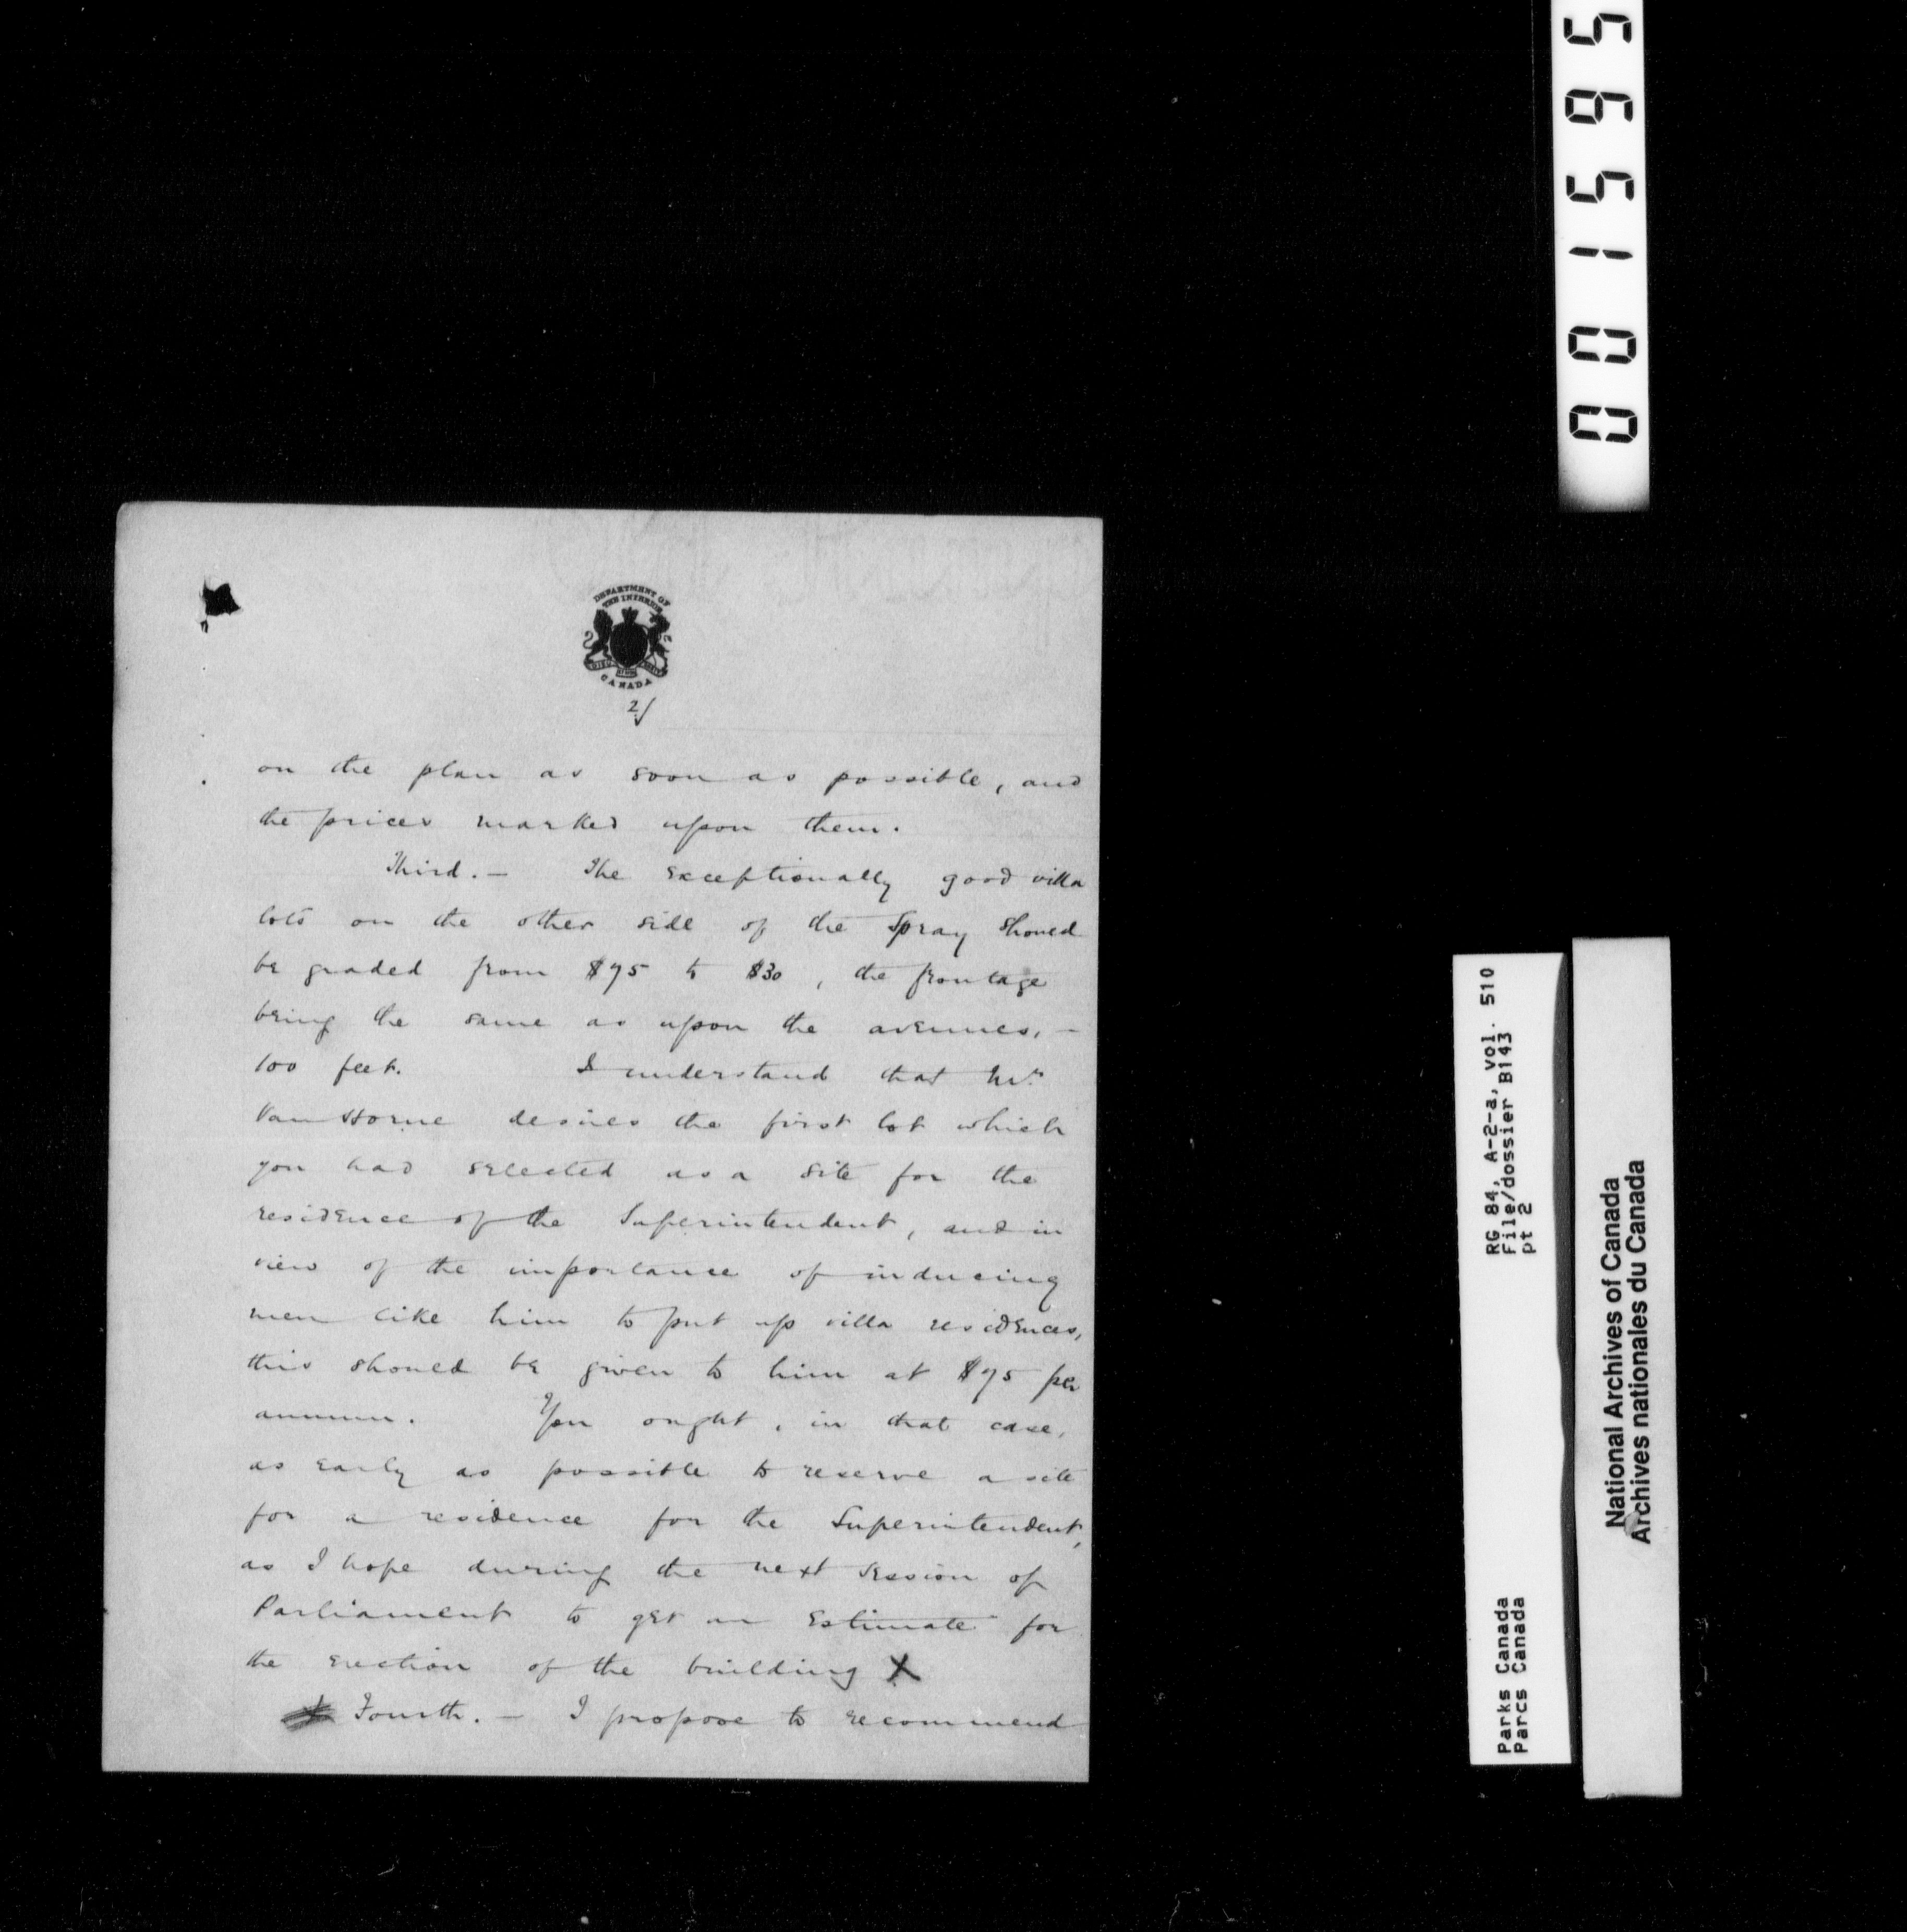 DEPARTMENT OF
THE INTERIOR
CANADA
2/
on the plan as soon as possible, and
the prices marked upon them.
Third. — The exceptionally good villa
lots on the other side of the Spray should
be graded from $75 to $30, the frontage
being the same as upon the avenues, —
100 feet. I understand that Mr.
Van Horne desires the first lot which
you had selected as a site for the
residence of the Superintendent, and in
view of the importance of inducing
men like him to put up villa residences,
this should be given to him at $75 per
annum. You ought, in that case,
as early as possible to reserve a site
for a residence for the Superintendent,
as I hope during the next session of
Parliament to get an Estimate for
the erection of the building X
Fourth. — I propose to recommend
001595
RG 84, A-2-a, vol. 510
File/dossier B143
pt 2
Parks Canada
Parcs Canada
National Archives of Canada
Archives nationales du Canada